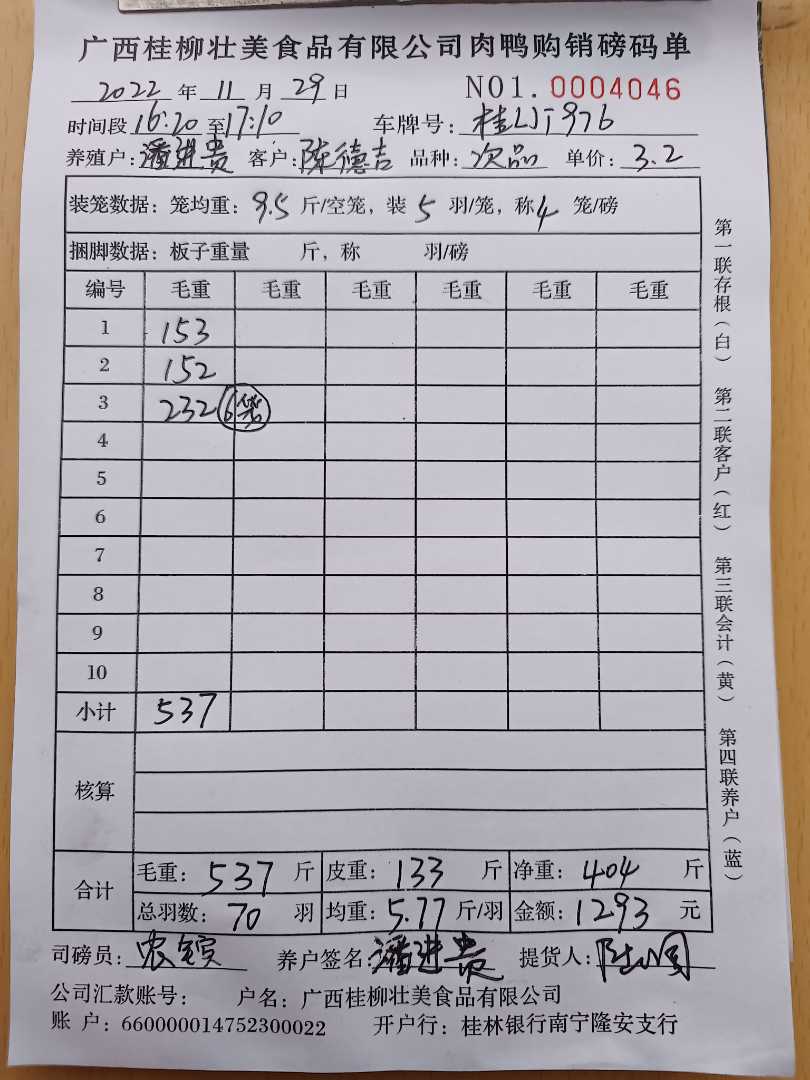 广西桂柳壮美食品有限公司肉鸭购销磅码单
2022 年 11 月 29 日 NO1. 0004046
时间段 16:20 至 17:10 车牌号: 桂LJT976
养殖户: 潘进贵 客户: 陈德吉 品种: 次品 单价: 3.2
装笼数据: 笼均重: 9.5 斤/空笼, 装 5 羽/笼, 称 4 笼/磅
捆脚数据: 板子重量 斤, 称 羽/磅
编号 毛重 毛重 毛重 毛重 毛重 毛重
1 153
2 152
3 232 6笼
4
5
6
7
8
9
10
小计 537
核算
合计 毛重: 537 斤 皮重: 133 斤 净重: 404 斤
总羽数: 70 羽 均重: 5.77 斤/羽 金额: 1293 元
司磅员: 养户签名: 潘进贵 提货人:
公司汇款账号: 户名: 广西桂柳壮美食品有限公司
账 户: 660000014752300022 开户行: 桂林银行南宁隆安支行
第一联存根(白) 第二联客户(红) 第三联会计(黄) 第四联养户(蓝)